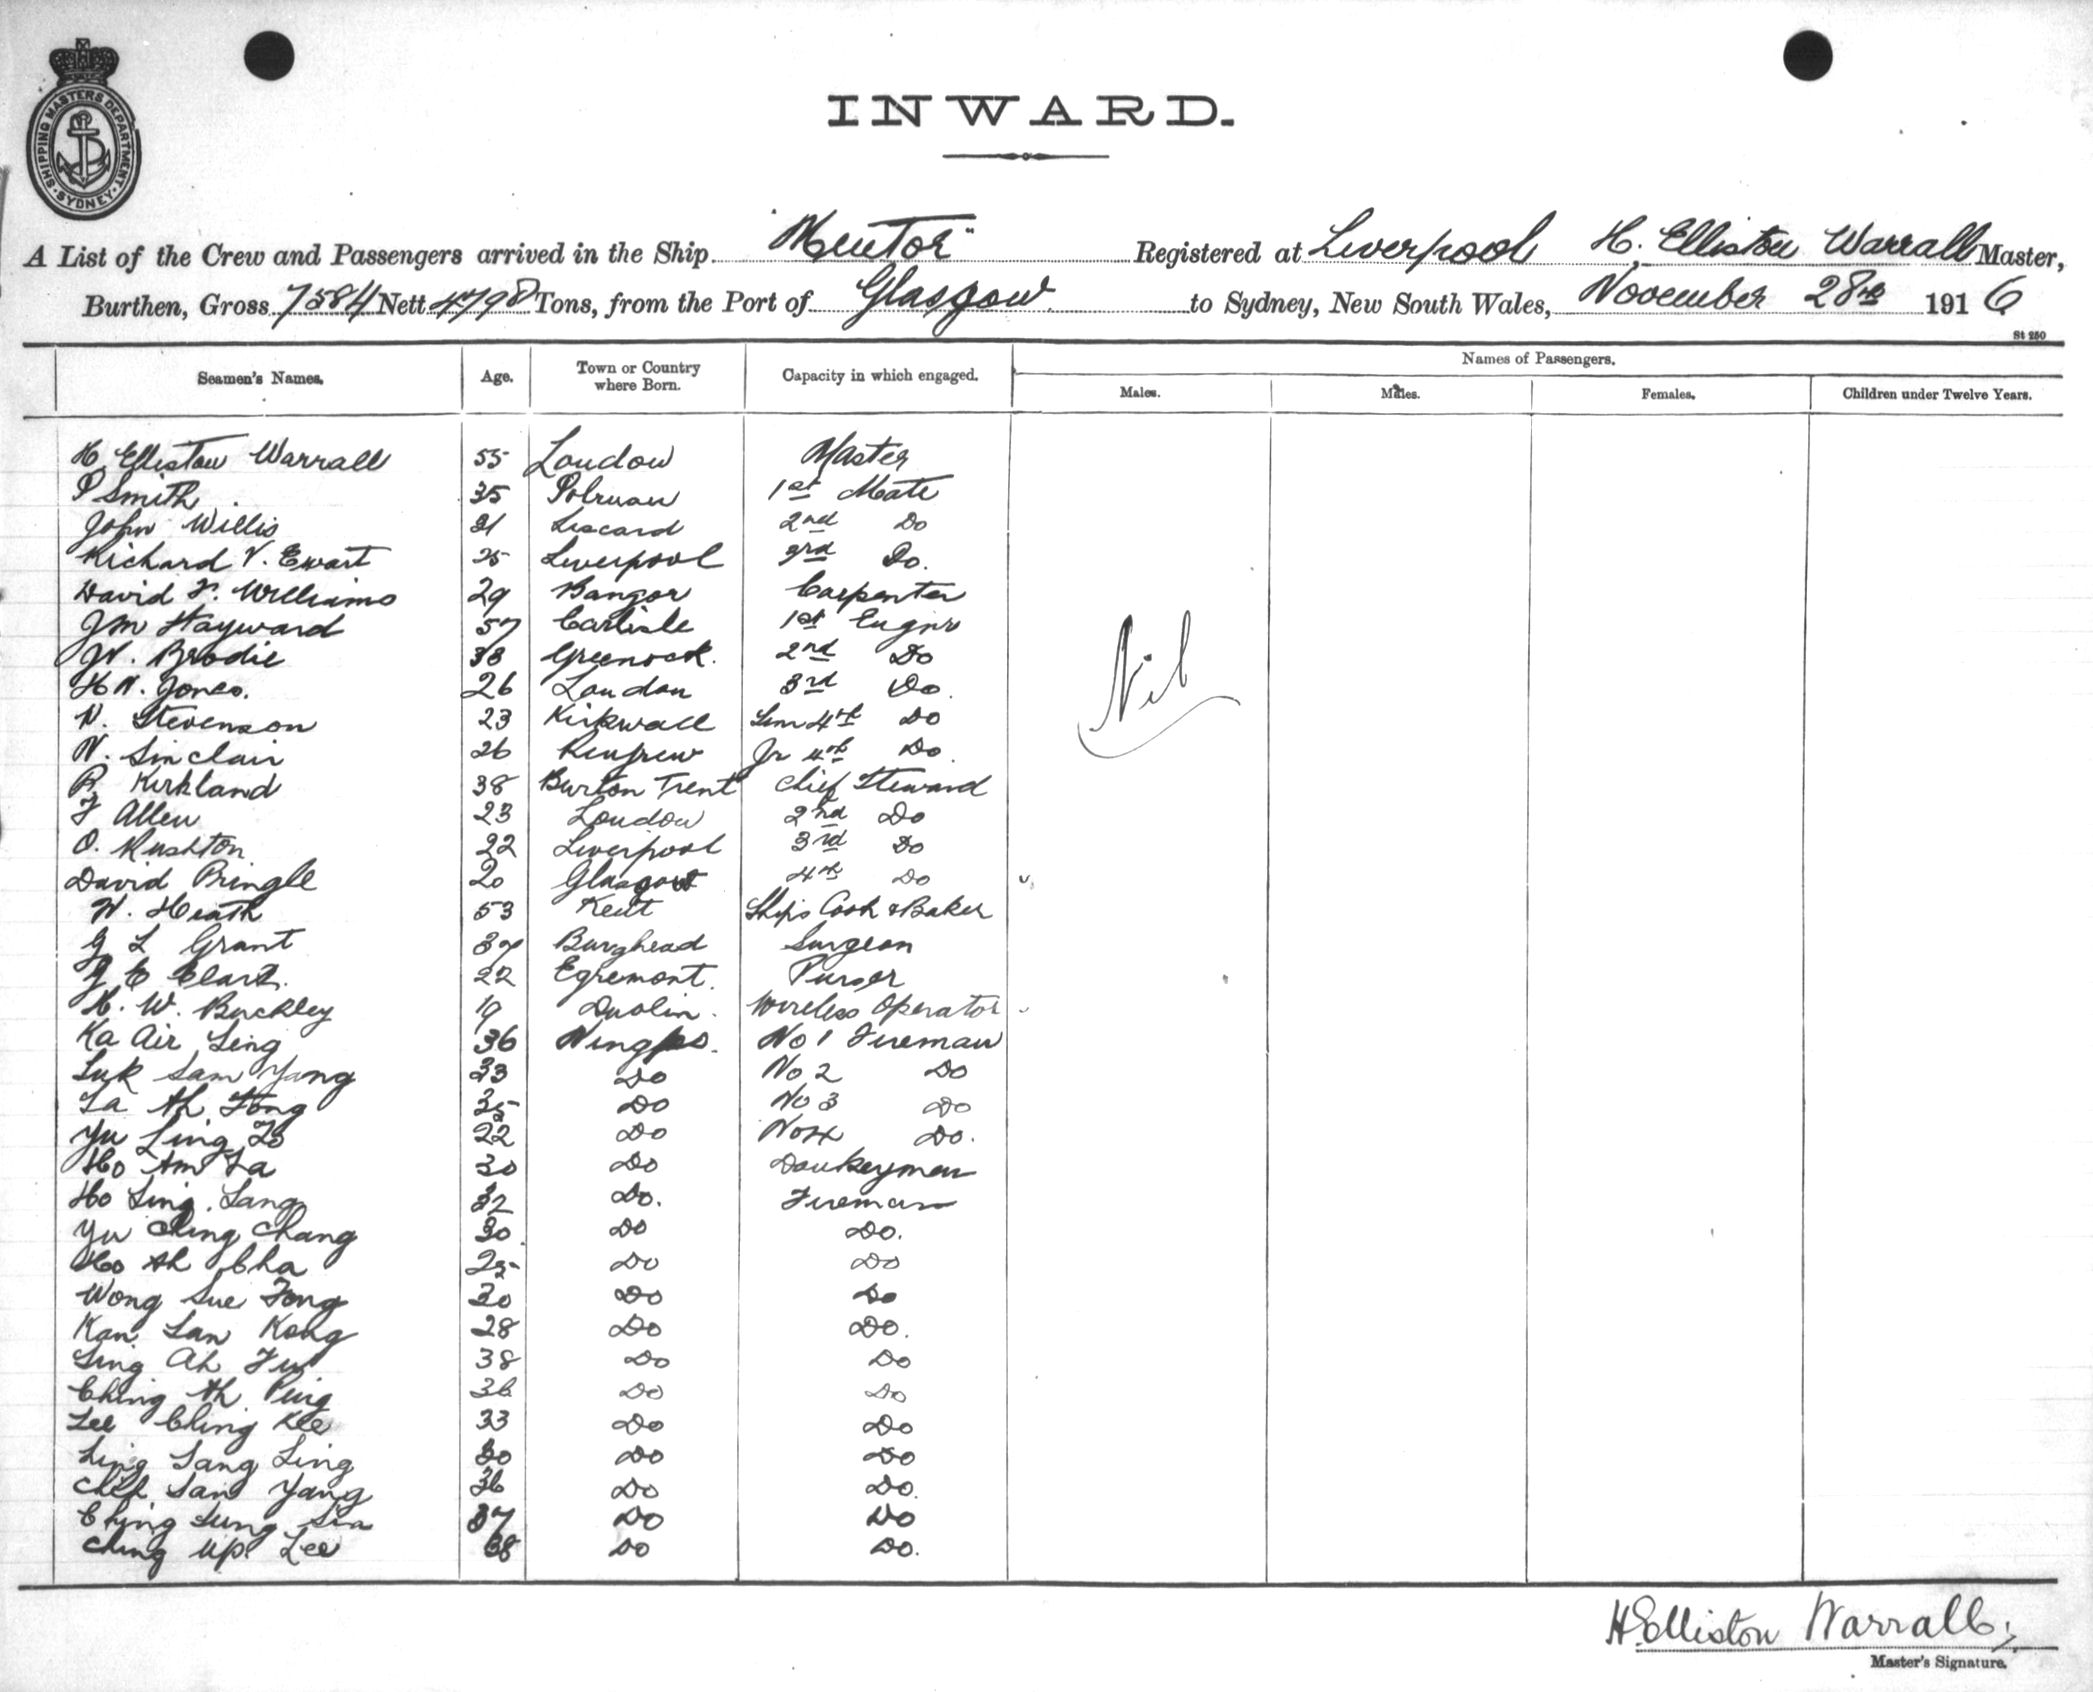 SHIPPING MASTERS DEPARTMENT
SYDNEY
INWARD.
A List of the Crew and Passengers arrived in the Ship "Mentor" Registered at Liverpool H. Elliston Warrall Master,
Burthen, Gross 7584 Nett 4798 Tons, from the Port of Glasgow to Sydney, New South Wales, November 28th 1916
St 250
Seamen's Names. Age. Town or Country where Born. Capacity in which engaged. Names of Passengers.
Males. Males. Females. Children under Twelve Years.
H Elliston Warrall 55 London Master
P Smith 35 Polruan 1st Mate
John Willis 21 Liscard 2nd Do
Richard V. Ewart 25 Liverpool 3rd Do.
David T. Williams 29 Bangor Carpenter
J M Hayward 57 Carlisle 1st Engnr
W. Brodie 38 Greenock. 2nd Do
H W. Jones. 26 London 3rd Do.
W. Stevenson 23 Kirkwall Senr 4th Do
W. Sinclair 26 Renfrew Jr 4th Do.
R Kirkland 38 Burton Trent Chief Steward
F Allen 23 London 2nd Do
O. Rushton 22 Liverpool 3rd Do
David Pringle 20 Glasgow 4th Do
W. Heath 53 Kent Ships Cook & Baker
G L Grant 37 Burghead Surgeon
G E Clark. 22 Egremont. Purser
H. W. Buckley 19 Dublin. Wireless Operator
Ka Air Ling 36 Ningpo. No 1 Fireman
Luk Sam Yang 33 Do No 2 Do
La Ah Fong 35 Do No 3 Do
Yu Ling Zo 22 Do No 4 Do.
Ho Am La 30 Do Donkeyman
Ho Ling Lang 32 Do. Fireman
Yu Ching Chang 30 Do Do.
Ho Ah Cha 25 Do Do
Wong Sue Fong 30 Do Do
Kan San Kong 28 Do Do.
Ling Ah Fui 38 Do Do
Ching Ah Ping 36 Do Do
Lee Ching Kee 33 Do Do
Ling Sang Ling 30 Do Do
Chek San Yang 36 Do Do.
Ching Sung Sia 37 Do Do
Ching Up Lee 38 Do Do.
Nil
H. Elliston Warrall
Master's Signature.